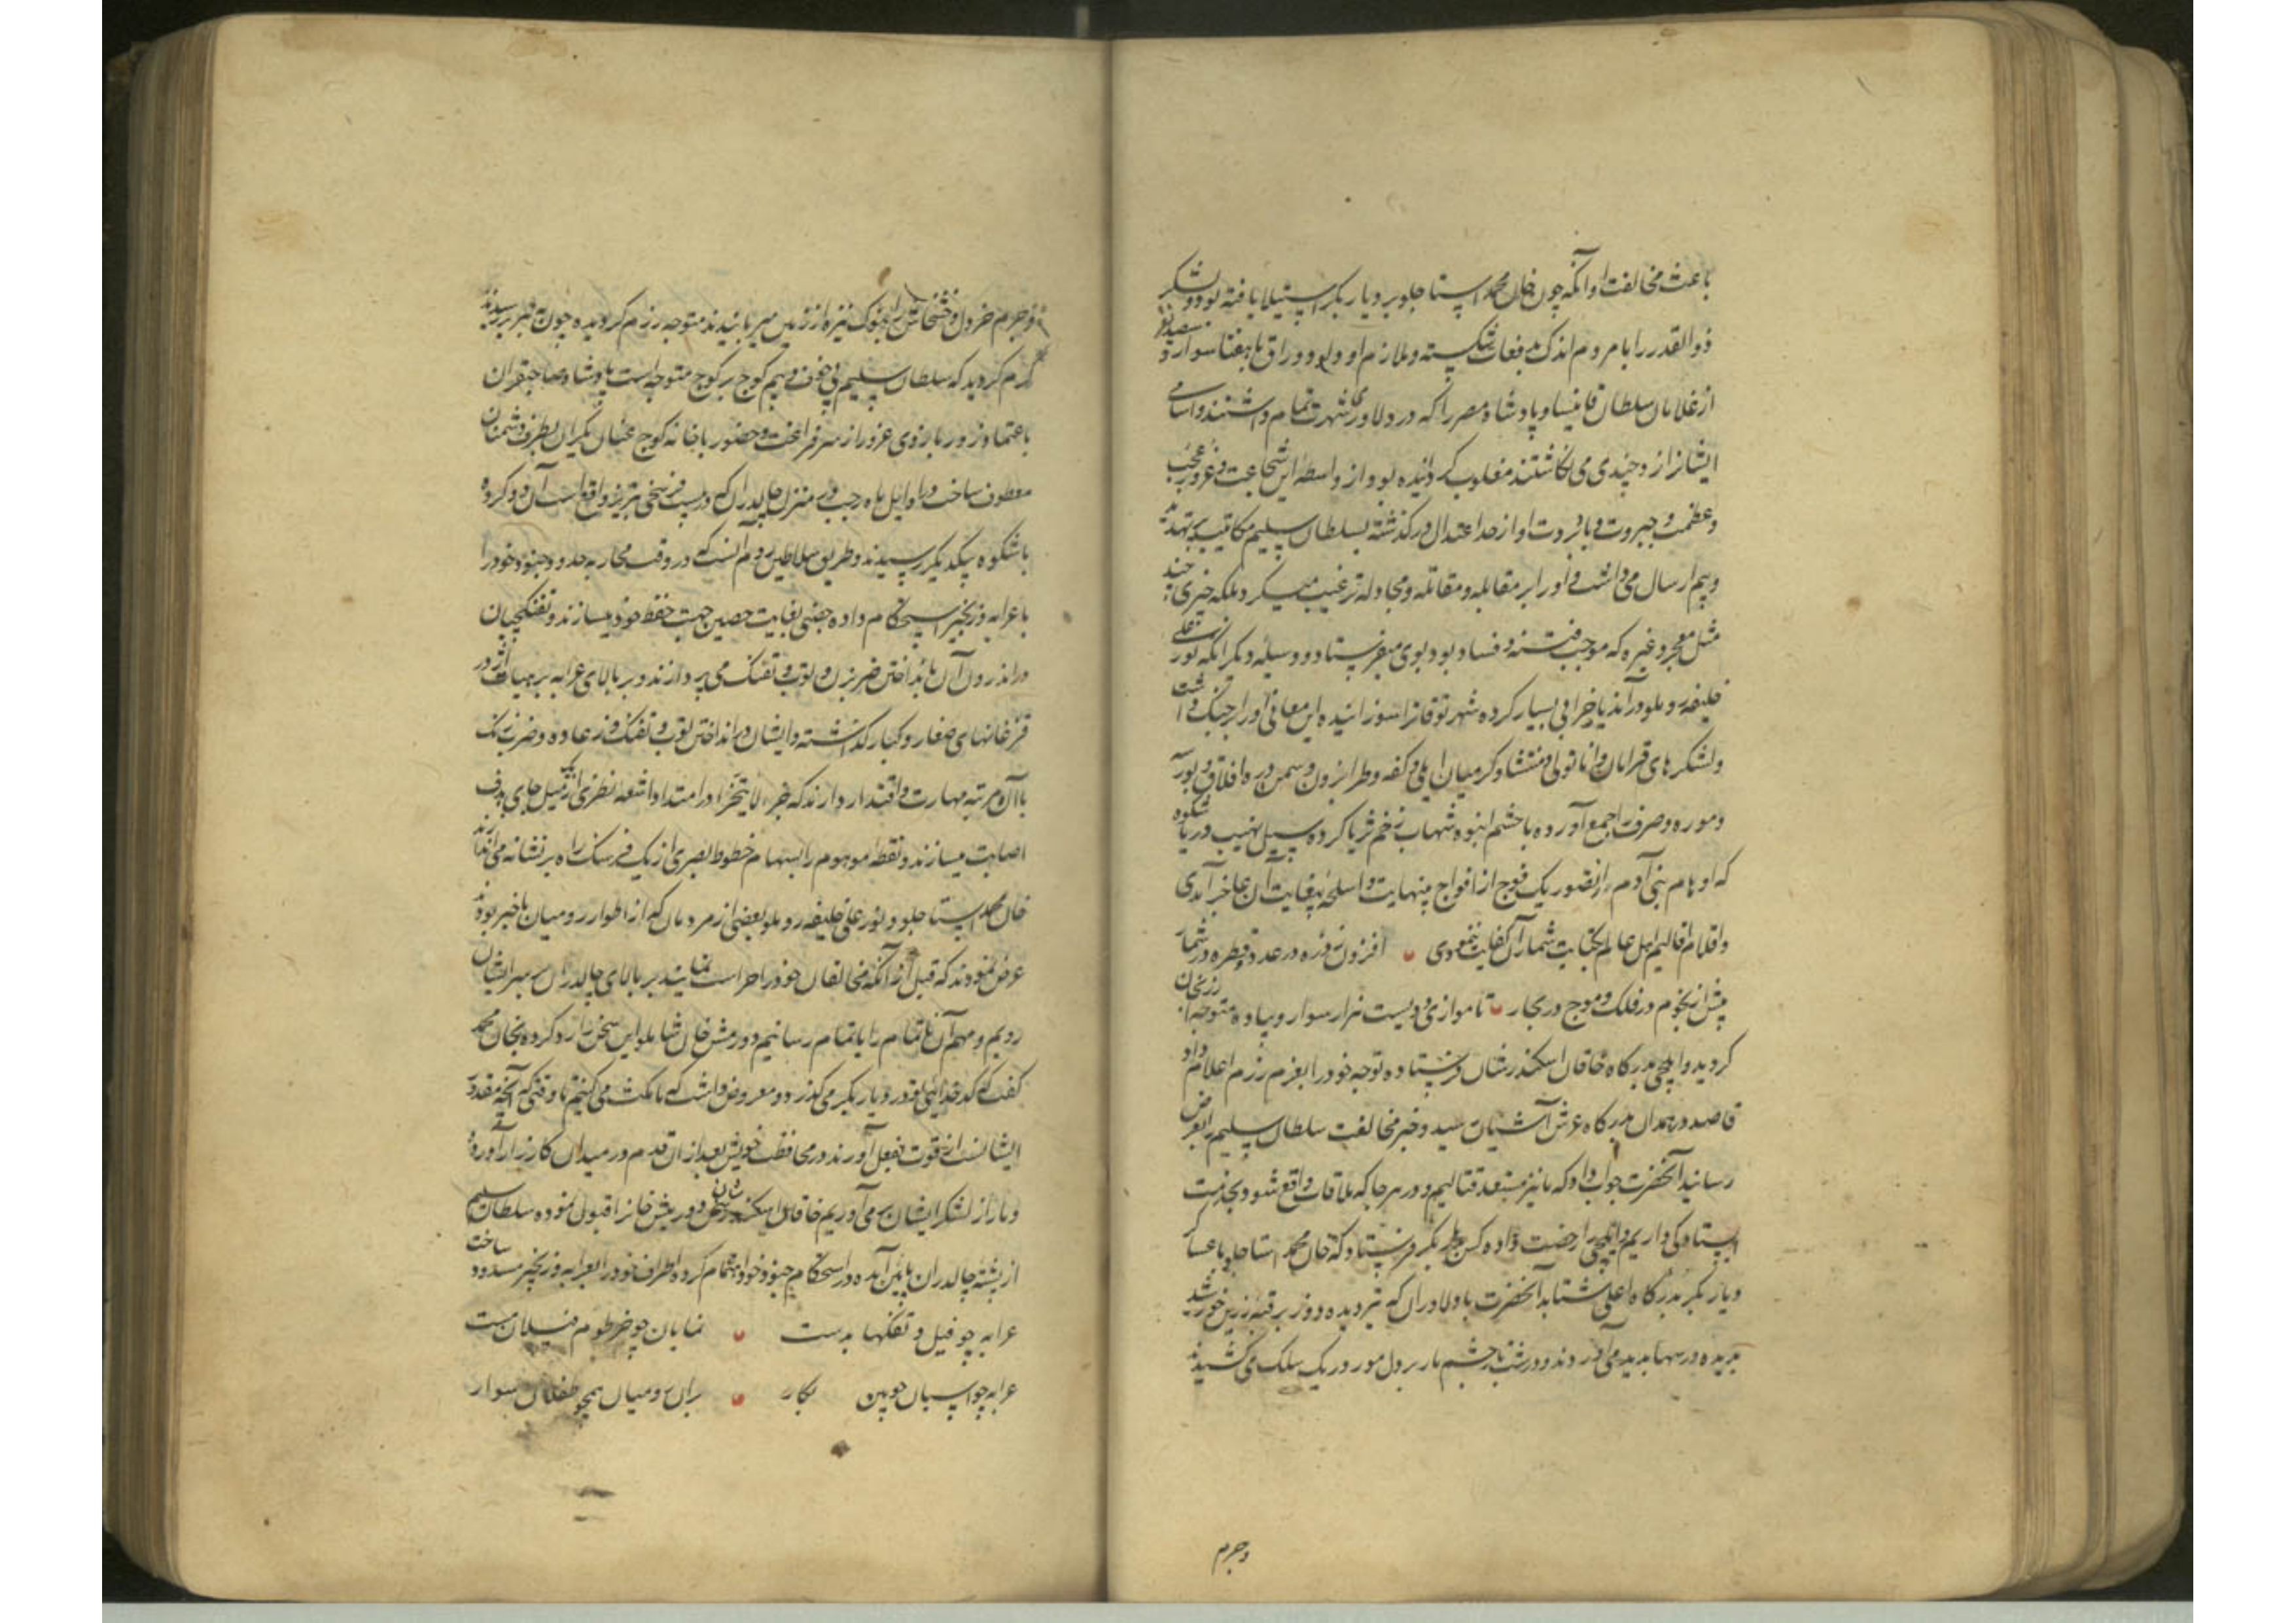 باعث مخالفت او آنکه چون خان محمد استاجلو بر دیار بکر استیلا یافته بود و لشکر
ذوالقدر را با مردم اندک بدفعات شکسته و ملازم او بهفتاد سوار
از غلامان سلطان قانیساو پادشاه مصر را که در دلاوری شهرت تمام داشتند و اسامی
ایشانرا از وجیندی می انگاشتند مغلوب گردانیده بود و از واسطه این شجاعت و غرور عجب
و عظمت و جبروت او از حد اعتدال در گذشته بسلطان سلیم مکاتیب تهدید
و بیم ارسال می داشت و او را بر مقابله و مقاتله و مجادله ترغیب میکرد بلکه چیزی چند
مثل معجر و غیره که موجب فتنه و فساد بود بوی میفرستاد و وسیله دیگر آنکه نور علی
خلیفه روملو در آذربایجان خرابی بسیار کرده شهر توقاترا سوزانیده این معانی او را بر جنگ داشت
و لشکرهای قرامان و اناتولی و منتشا و کرمیان ایلی و کفه و طرابزون و سمندره و افلاق
و موره و صرف را جمع آورده با حشم انبوه شهاب زخم ثریا کرده سیل نهیب دریا شکوه
که اوهام بنی آدم از تصور یک فوج از افواج بینهایت و اسلحه بیغایت آن عاجز آمدی
و اقلام اقالیم اهل عالم بکتابت شمار آن کفایت ننمودی افزون ز ذره در عدد و قطره در شمار
بیش از نجوم در فلک و موج در بحار تا موازی دویست هزار سوار و پیاده متوجه ارزنجان
گردید و ایلچی بدرگاه خاقان اسکندرشان فرستاده توجه خود را بعزم رزم اعلام داد
قاصد در همدان بدرگاه عرش آشیان رسید و خبر مخالفت سلطان سلیم را بعرض
رسانید آنحضرت جواب داد که ما نیز مستعد قتالیم و در هر جا که ملاقات واقع شود بخدمت
ایستادگی داریم و ایلچی را رخصت داده کس بدیار بکر فرستاد که خان محمد استاجلو با عساکر
دیار بکر بدرگاه اعلی شتابد آنحضرت با دلاورانی که به تیر دیده دوز بر قبه زرین خورشید
بدیده در سها پدید می آوردند و در شب با چشم مار بر دل مور در یک سلک می کشیدند
و جرم
و جرم خردل و خشخاش را بنوک نیزه از زمین میربایند متوجه رزم گردیده چون به تبریز رسیدند
گرم گردید که سلطان سلیم بی خوف و بیم کوچ بر کوچ متوجه است پادشاه صاحبقران
باعتماد زور بازوی غرور از سر فراغت و حضور باخانه کوچ عنان یکران بطرف دشمنان
معطوف ساخت و در اوایل ماه رجب در منزل چالدران که در بیست فرسخی تبریز واقع است آن دو گروه
با شکوه بیکدیگر رسیدند و طریق سلاطین روم آنست که در وقت محاربه حدود جنود خود را
با عرابه و زنجیر استحکام داده حصنی بغایت حصین جهت حفظ خود میسازند و تفنکچیان
در اندرون آن بانداختن ضربزن و توپ و تفنک می پردازند و بر بالای عرابه بر هیأت اژدر
قزغانهای صغار و کبار گذاشته و ایشان در انداختن توپ و تفنک و رعاده و ضربزنک
با آن مرتبه مهارت و اقتدار دارند که جزء لا یتجزا را در امتداد اشعه نظری از یک میل جای هدف
اصابت میسازند و نقطه موهوم را بسهام خطوط بصری از یک فرسنک راه بر نشانه می اندازند
خان محمد استاجلو و نور علی خلیفه روملو و بعضی از مردمان که از اطوار رومیان باخبر بودند
عرض نمودند که قبل از آنکه مخالفان خود را حراست نمایند بر بالای چالدران بر سر ایشان
رویم و مهم آن ناتمام را باتمام رسانیم و دورمش خان شاملو این سخن را رد کرده بخان محمد
گفت که کدخدائی تو در دیار بکر می گذرد و معروض داشت که ما مکث می کنیم تا وقتی که آنچه مقدور
ایشانست از قوت بفعل آورند در محافظت خویش بعد از آن قدم در میدان کارزار آورده
دمار از لشکر ایشان بر می آوریم خاقان اسکندر شان سخن دورمیش خانرا قبول نموده سلطان سلیم
از پشته چالدران پایین آمده در استحکام جنود خود اهتمام کرده اطراف خود را بعرابه و زنجیر مسدود ساخت
عرابه چو فیل و تفنکها بدست نمایان چو خرطوم فیلان مست
عرابه چو اسبان چوبین بکار بران رومیان همچو طفلان سوار